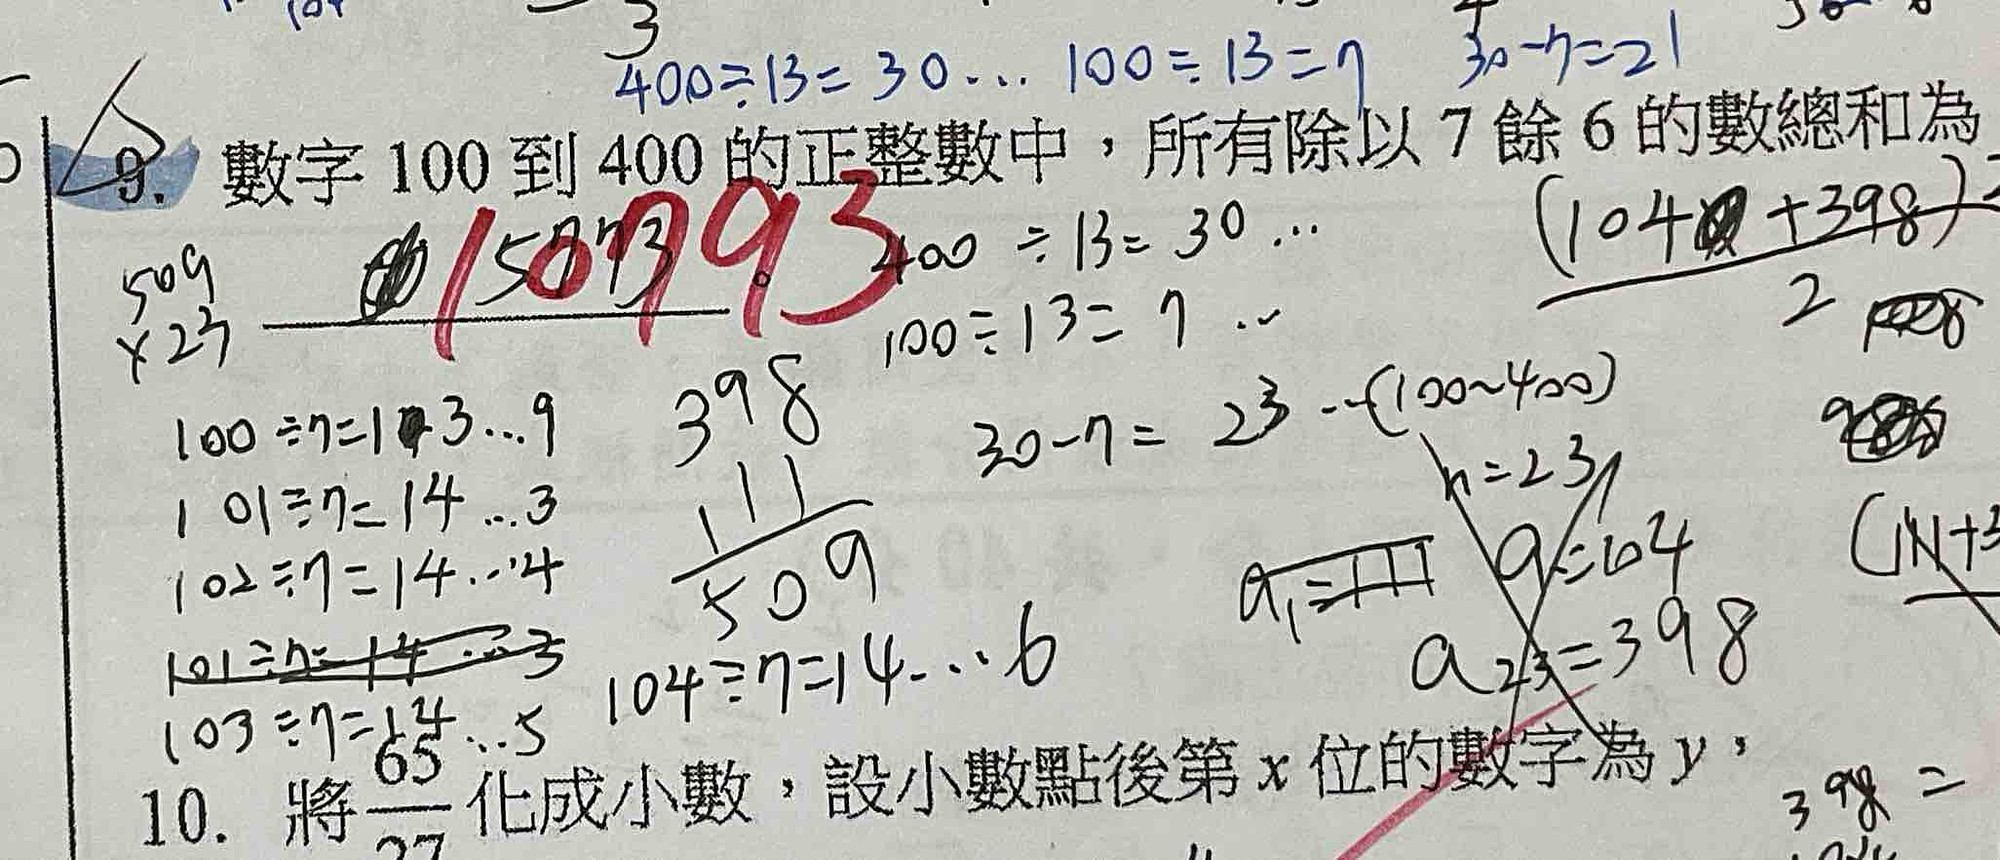 3
400÷13=30... 100÷13=7 30-7=21
9. 數字 100 到 400 的正整數中，所有除以 7 餘 6 的數總和為
15773。
10793
509
×23
400÷13=30...
100÷13=7...
(104+398)
2
30-7=23...(100~400)
100÷7=13...9
101÷7=14...3
102÷7=14...4
101÷7=14...3
103÷7=14...5
398
111
509
104÷7=14...6
n=23
a₁=111
a=104
a₂₃=398
10. 將 65/27 化成小數，設小數點後第 x 位的數字為 y，
398=